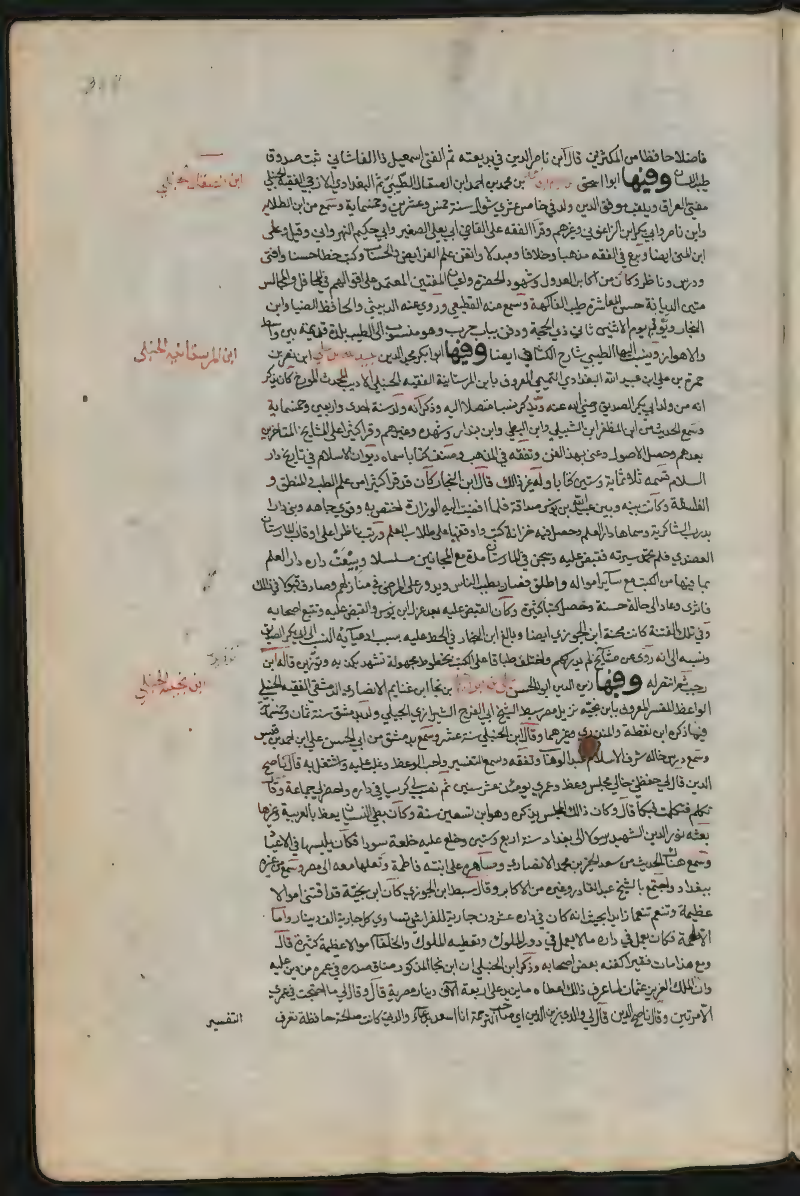 فاضلا حافظا من المكثرين قال ابن ناصر الدين في بديعته ثم الفتى اسمعيل ذا القاشاني ثبت صدوق
طيب اللسان وفيها ابو اسحق بن محمد بن احمد ابن الصقال الطيبي ثم البغدادي الازجي الفقيه الحنبلي
ابن الصقال الحنبلي
مفتي العراق ويلقب موفق الدين ولد في خامس عشري شوال سنة خمس وعشرين وخمسماية وسمع من ابن الطلايه
وابن ناصر وابي بكر ابن الزاغوني وغيرهم وقرا الفقه على القاضي ابي يعلى الصغير وابي حكيم النهرواني وقيل وعلى
ابن المنى ايضا وبرع في الفقه مذهبا وخلافا وجدلا واتقن علم الفرايض والحساب وكتب خطا حسنا وافتى
ودرس وناظر وكان من اكابر العدول وشهود الحضرة واعيان المفتين المعتمد على اقوالهم في المحافل والمجالس
متين الديانة حسن المعاشرة طيب الفاكهة وسمع منه القطيعي وروى عنه الدبيثي والحافظ الضيا وابن
النجار وتوفي يوم الاثنين ثاني ذي الحجة ودفن بباب حرب وهو منسوب الى الطيب بلدة قديمة بين واسط
والاهواز وينسب اليها الطيبي شارح الكشاف ايضا وفيها ابو بكر محيي الدين عبيد الله بن علي ابن نصر بن
ابن المرستانية الحنبلي
حمزة بن علي ابن عبيد الله البغدادي التيمي المعروف بابن المرستانية الفقيه الحنبلي الاديب المحدث المورخ كان يذكر
انه من ولد ابي بكر الصديق رضي الله عنه ويذكر نسبا متصلا اليه وذكر انه ولد سنة احدى واربعين وخمسماية
وسمع الحديث من ابي المظفر ابن الشبلي وابن البطي وابن بندار وشهده وغيرهم وقرا كثيرا على المشايخ المتاخرين
بعدهم وحصل الاصول وعني بهذا الفن وتفقه في المذهب وصنف كتابا سماه ديوان الاسلام في تاريخ دار
السلام قسمه ثلاثماية وستين كتابا وله غير ذلك قال ابن النجار كان قد قرا كثيرا من علم الطب والمنطق و
الفلسفة وكانت بينه وبين عبيد الله بن يونس صداقة فلما افضت اليه الوزارة اختص به وقوي جاهه وبنى دارا
بدرب الشاكرية وسماها دار العلم وحصل فيه خزانة كتب واوقفها على طلاب العلم ورتب ناظرا على اوقاف المارستان
العضدي فلم تحمد سيرته فقبض عليه وسجن في المارستان مدة مع المجانين مسلسلا وبيعت داره دار العلم
بما فيها من الكتب مع ساير امواله واطلق فصار يطب الناس ويدور على المرضى في منازلهم وصادف قبولا في ذلك
فاثرى وعاد الى حالة حسنة وحصل كتبا كثيرة وكان القبض عليه بعد عزل ابن يونس والقبض عليه وتتبع اصحابه
وفي تلك الفتنة كانت محنة ابن الجوزي ايضا وبالغ ابن النجار في الحط عليه بسبب ادعايه النسب الى ابي بكر الصديق
ونسبه الى انه روى عن مشايخ لم يدركهم واختلق طباقا على الكتب بخطوط مجهولة تشهد بكذبه وتزويره قاله ابن
رجب ثم انتصر له وفيها زين الدين ابو الحسن علي بن ابراهيم بن نجا ابن غنايم الانصاري الدمشقي الفقيه الحنبلي
ابن نجية الحنبلي
الواعظ المفسر المعروف بابن نجية نزيل مصر سبط الشيخ ابي الفرج الشيرازي الجيلي ولد بدمشق سنة ثمان وخمسماية
فيما ذكره ابن نقطة والمنذري وغيرهما وقال ابن الحنبلي سنة عشر وسمع بدمشق من ابي الحسن علي ابن احمد بن قبيس
وسمع درس خاله شرف الاسلام عبد الوهاب وتفقه وسمع التفسير واحب الوعظ وغلب عليه واشتغل به قال ناصح
الدين قال لي حفظني خالي مجلس وعظ وعمري يومئذ عشر سنين ثم نصب لي كرسيا في داره واحضر لي جماعة وقال
تكلم فتكلمت فبكى قال وكان ذلك المجلس يذكره وهو ابن تسعين سنة وكان بطي النسيان يعظ بالعربية وغيرها
بعثه نور الدين الشهيد رسولا الى بغداد سنة اربع وستين وخلع عليه خلعة سودا فكان يلبسها في الاعياد
وسمع هناك الحديث من سعد الخير بن محمد الانصاري وصاهره على ابنته فاطمة ونقلها معه الى مصر وسمع من غيره
ببغداد واجتمع بالشيخ عبد القادر وغيره من الاكابر وقال سبط ابن الجوزي كان ابن نجية قد اقتنى اموالا
عظيمة وتنعم تنعما زايدا بحيث انه كان في داره عشرون جارية للفراش تساوي كل جارية الف دينار واما
الاطعمة فكان يعمل في داره ما لا يعمل في دور الملوك وتعطيه الملوك والخلفا اموالا عظيمة كثيرة قال
ومع هذا مات فقيرا كفنه بعض اصحابه وذكر ابن الحنبلي ان ابن نجا المذكور ضاق صدره في عمره من دين عليه
وان الملك العزيز عثمان لما عرف ذلك اعطاه ما يزيد على اربعة الاف دينار مصرية قال وقال لي ما احتجت في عمري
الا مرتين وقال ناصح الدين قال لي والدي زين الدين اي صاحب الترجمة انا اسعد بدعاء والدتي كانت صالحة حافظة تعرف
التفسير